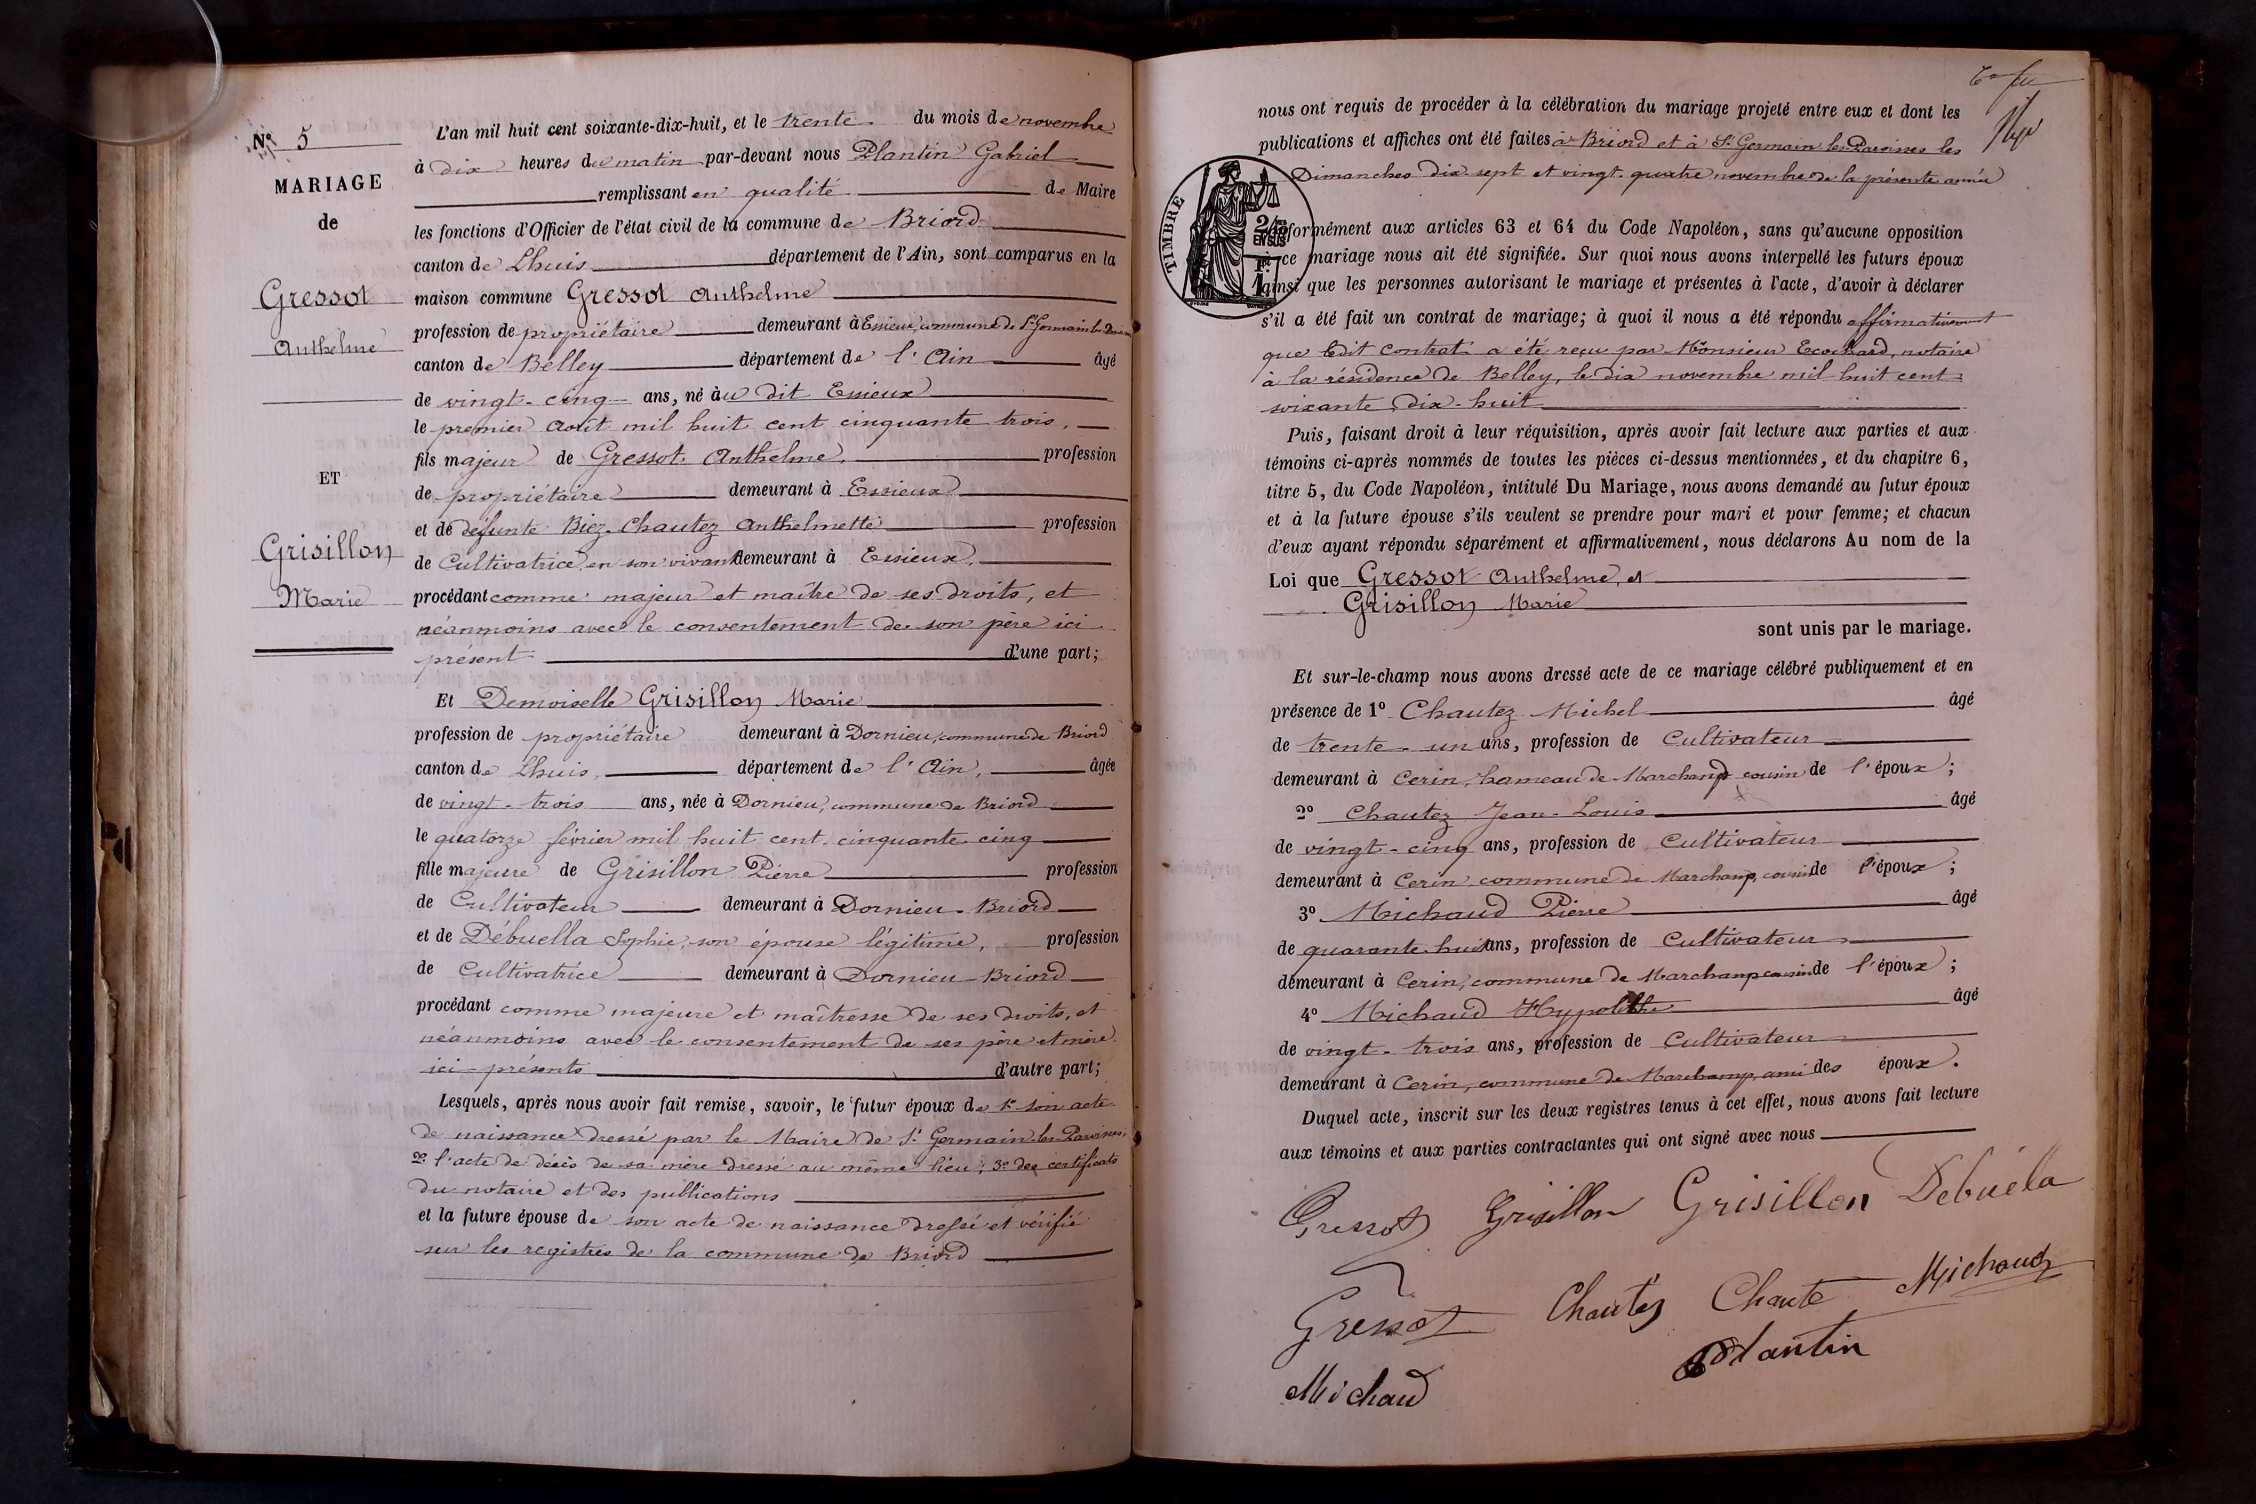 N° 5
MARIAGE
de
Gressot
Anthelme
ET
Grisillon
Marie
L'an mil huit cent soixante-dix-huit, et le trente du mois de novembre
à dix heures du matin par-devant nous Plantin Gabriel
remplissant en qualité de Maire
les fonctions d'Officier de l'état civil de la commune de Briord
canton de Lhuis département de l'Ain, sont comparus en la
maison commune Gressot Anthelme
profession de propriétaire demeurant à Essieux, commune de St Germain les Paroisses
canton de Belley département de l'Ain âgé
de vingt-cinq ans, né au dit Essieux
le premier Août mil huit cent cinquante trois,
fils majeur de Gressot Anthelme, profession
de propriétaire demeurant à Essieux
et de défunte Biez-Chautez Anthelmette profession
de Cultivatrice en son vivant demeurant à Essieux,
procédant comme majeur et maître de ses droits, et
néanmoins avec le consentement de son père ici
présent d'une part;
Et Demoiselle Grisillon Marie
profession de propriétaire demeurant à Dornieu, commune de Briord
canton de Lhuis, département de l'Ain, âgée
de vingt-trois ans, née à Dornieu, commune de Briord
le quatorze février mil huit cent cinquante cinq
fille majeure de Grisillon Pierre profession
de Cultivateur demeurant à Dornieu-Briord
et de Débuella Sophie, son épouse légitime, profession
de Cultivatrice demeurant à Dornieu-Briord
procédant comme majeure et maîtresse de ses droits, et
néanmoins avec le consentement de ses père et mère
ici présents d'autre part;
Lesquels, après nous avoir fait remise, savoir, le futur époux de 1° son acte
de naissance dressé par le Maire de St Germain les Paroisses,
2° l'acte de décès de sa mère dressé au même lieu, 3° des certificats
du notaire et des publications
et la future épouse de son acte de naissance dressé et vérifié
sur les registres de la commune de Briord
nous ont requis de procéder à la célébration du mariage projeté entre eux et dont les
publications et affiches ont été faites à Briord et à St Germain les Paroisses les
Dimanches dix sept et vingt-quatre novembre de la présente année
TIMBRE
conformément aux articles 63 et 64 du Code Napoléon, sans qu'aucune opposition
à ce mariage nous ait été signifiée. Sur quoi nous avons interpellé les futurs époux
ainsi que les personnes autorisant le mariage et présentes à l'acte, d'avoir à déclarer
s'il a été fait un contrat de mariage; à quoi il nous a été répondu affirmativement
que ledit Contrat a été reçu par Monsieur Ecochard, notaire
à la résidence de Belley, le dix novembre mil huit cent
soixante dix-huit
Puis, faisant droit à leur réquisition, après avoir fait lecture aux parties et aux
témoins ci-après nommés de toutes les pièces ci-dessus mentionnées, et du chapitre 6,
titre 5, du Code Napoléon, intitulé Du Mariage, nous avons demandé au futur époux
et à la future épouse s'ils veulent se prendre pour mari et pour femme; et chacun
d'eux ayant répondu séparément et affirmativement, nous déclarons Au nom de la
Loi que Gressot Anthelme, et
Grisillon Marie
sont unis par le mariage.
Et sur-le-champ nous avons dressé acte de ce mariage célébré publiquement et en
présence de 1° Chautez Michel âgé
de trente-un ans, profession de Cultivateur
demeurant à Cerin, hameau de Marchamp cousin de l'époux;
2° Chautez Jean-Louis âgé
de vingt-cinq ans, profession de Cultivateur
demeurant à Cerin, commune de Marchamp, cousin de l'époux;
3° Michaud Pierre âgé
de quarante huit ans, profession de Cultivateur
demeurant à Cerin, commune de Marchamp cousin de l'époux;
4° Michaud Hypolithe âgé
de vingt-trois ans, profession de Cultivateur
demeurant à Cerin, commune de Marchamp, ami des époux.
Duquel acte, inscrit sur les deux registres tenus à cet effet, nous avons fait lecture
aux témoins et aux parties contractantes qui ont signé avec nous
Gressot Grisillon Grisillon Debuéla
Gressot Chautez Chaute Michaud
Michaud Plantin